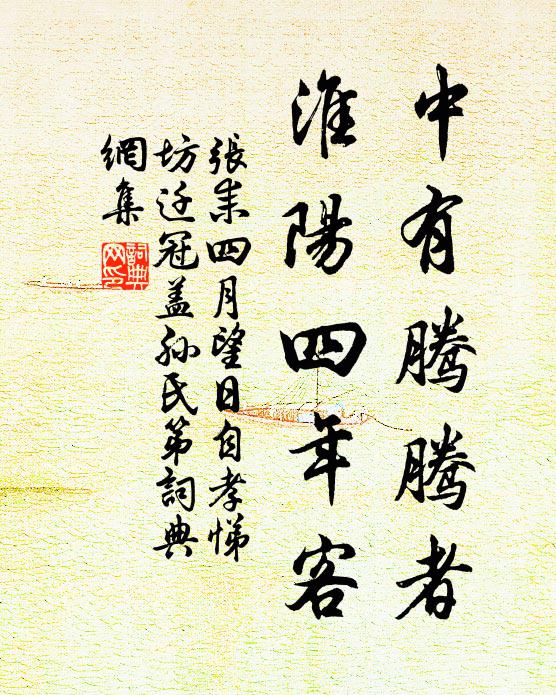 中有腾腾者
淮陽四年客
張耒四月望日自孝悌
坊迁冠盖孙氏第詞典
網集
詞典
网印